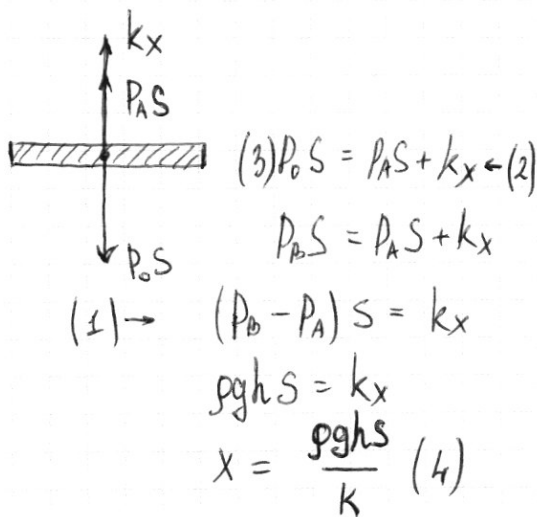 kx
P_A S
(3) P_0 S = P_A S + kx ← (2)
P_B S = P_A S + kx
P_0 S
(1) → (P_B - P_A) S = kx
ρghS = kx
x = ρghS / k (4)